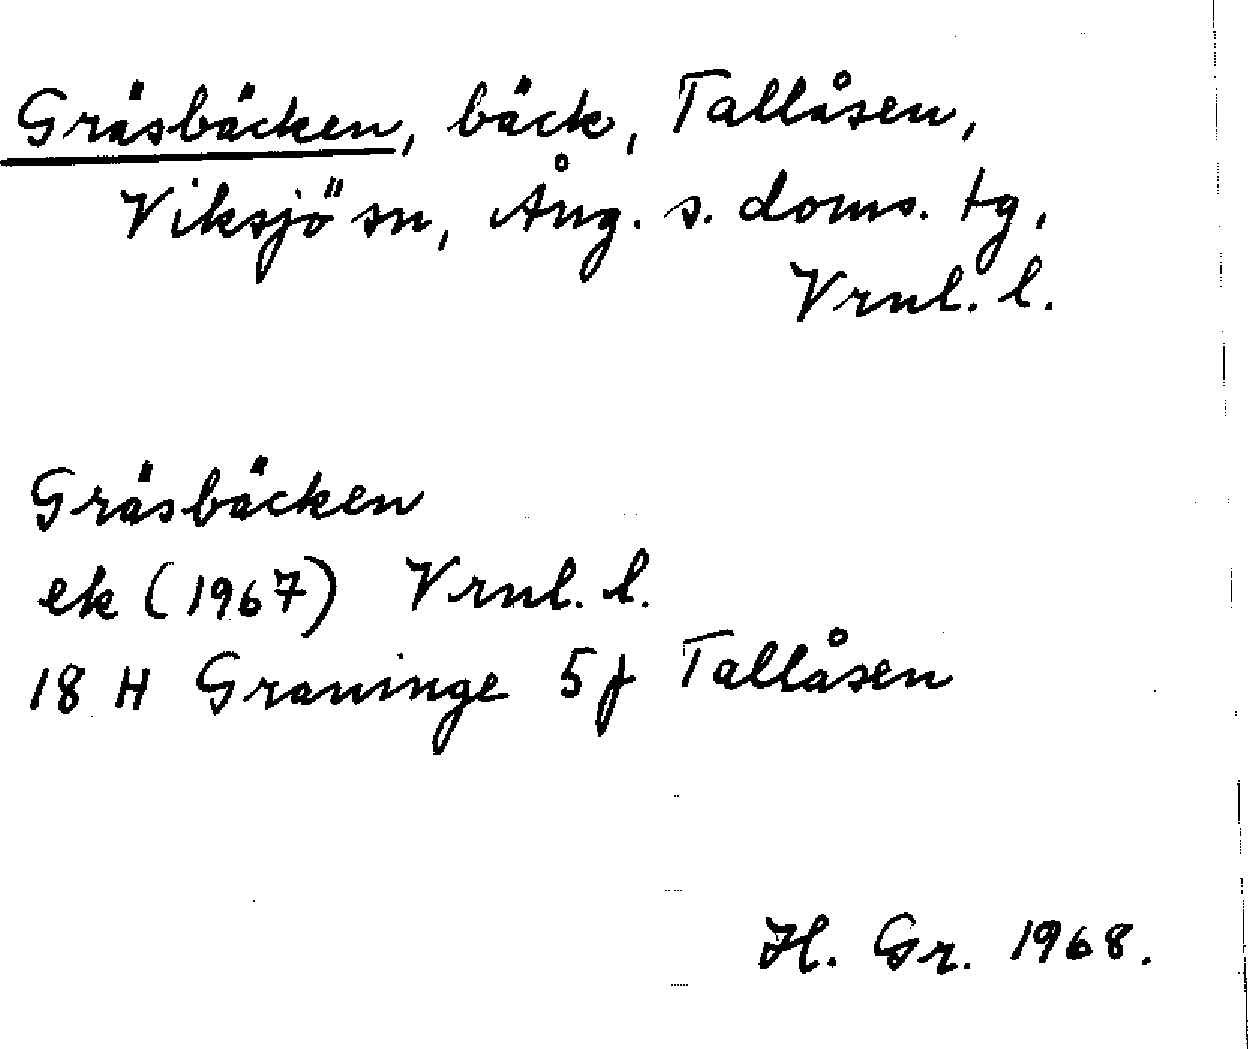 Gräsbäcken, bäck, Tallåsen,
Viksjö sn, Ång. s. doms. tg,
Vrnl. l.
Gräsbäcken
ek (1967) Vrnl. l.
18 H Graninge 5f Tallåsen
H. Gr. 1968.